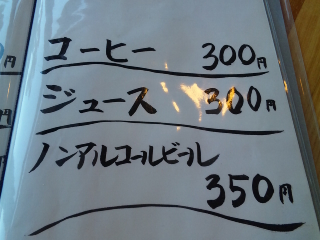 コーヒー 300円
ジュース 300円
ノンアルコールビール
350円